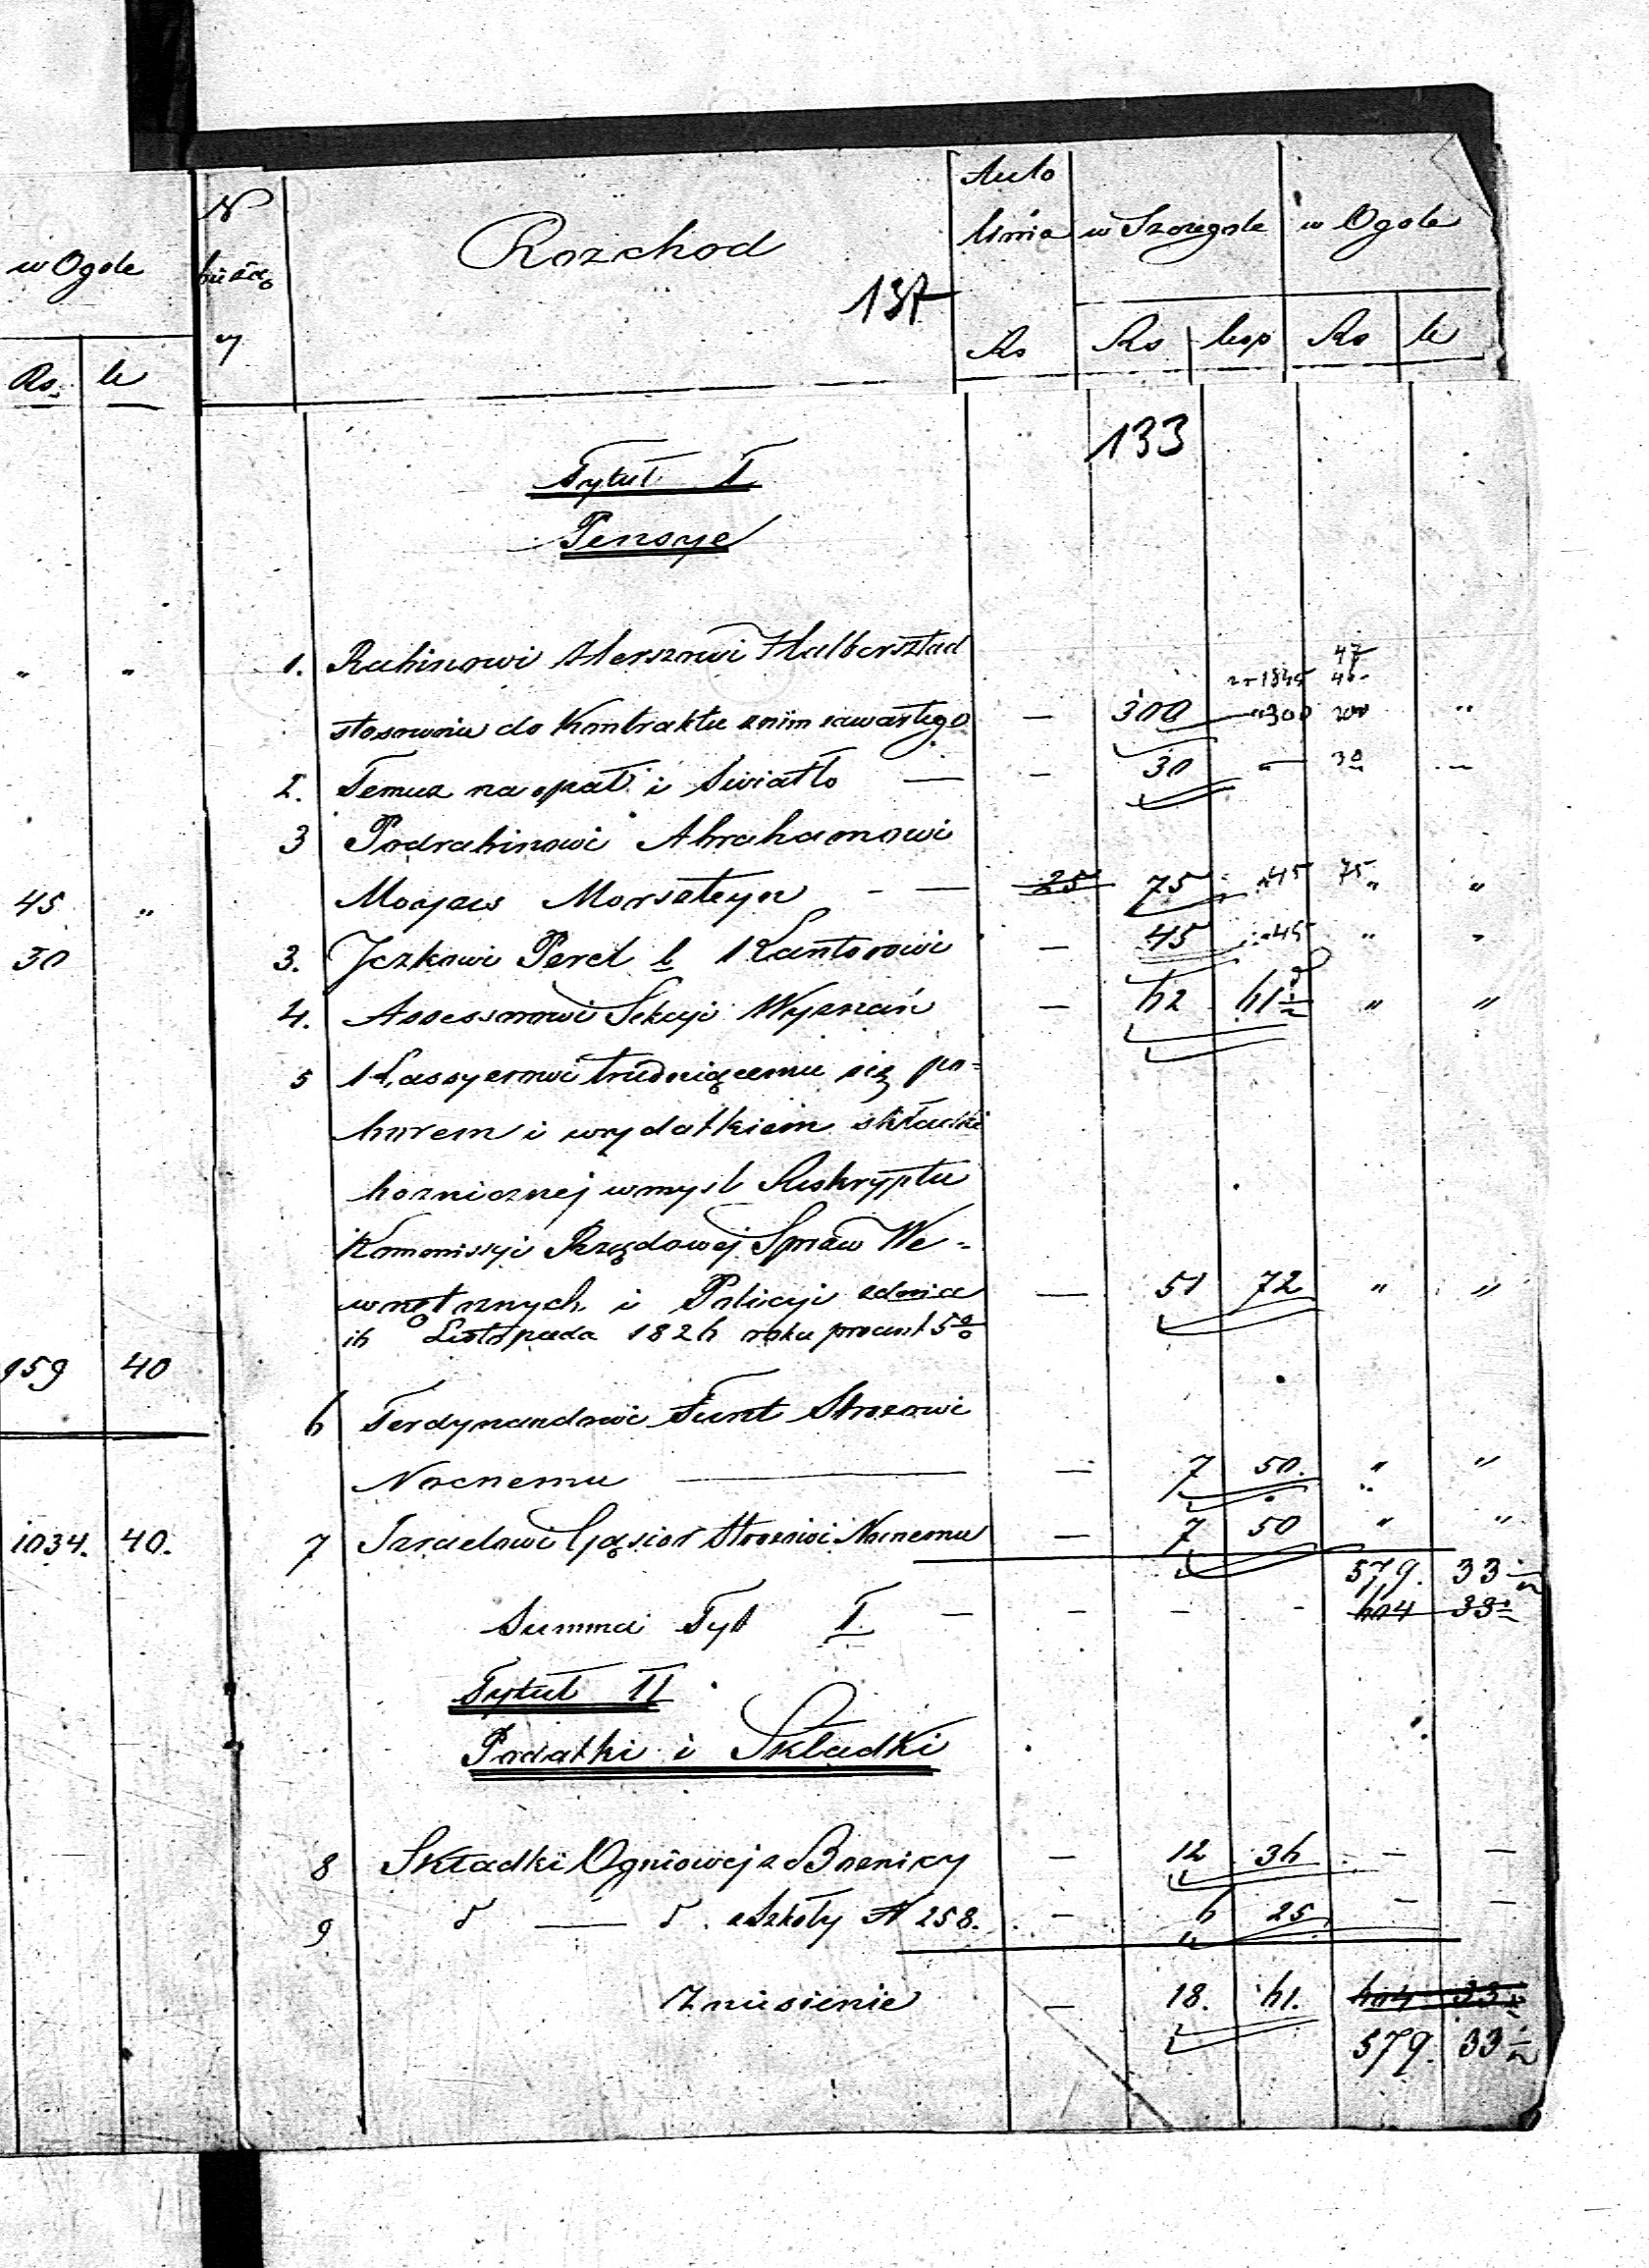 w Ogole
Rs. k
" "
45 "
30
959 40
1034. 40.
N
bieżący
Rozchod
137
w Szczegole w Ogole
Rs Rs kop Rs k
133
Tytuł I
Pensye
47
1. Rabinowi Herszowi Halbersztad 1845 46
stosownie do Kontraktu z nim zawartego — 300 300 300 "
2. Temuz na opał i Swiatło — — 30 — 30 —
3 Podrabinowi Abrahamowi
Moyżesz Morszteyn - — 25 75 45 75 " "
3. Jczkowi Perel Kantorowi — 45 45 " "
4. Assessorowi Sekcyi Wyznań — 62 61 1/2 " "
5 Kassyerowi trudniącemu się po=
borem i wydatkiem składki
boznicznej w mysl Reskryptu
Kommissyi Rządowej Spraw We=
wnętrznych i Policyi z dnia — 51 72 " "
16 Listopada 1826 roku procent 5%
6 Ferdynandowi Funt Strozowi
Nocnemu — — 7 50. " "
7 Izraelowi Gąsior Strozowi Nocnemu — 7 50 " "
579. 33 1/2
Summa Tyt I. — - - - 604 33 1/2
Tytuł II
Podatki i Składki
8 Składki Ogniowej z Boznicy — 12 36 — —
9 d — d. z Szkoły N 258. — 6 25 — —
Zniesienie — 18. 61. 604 33 1/2
579. 33 1/2